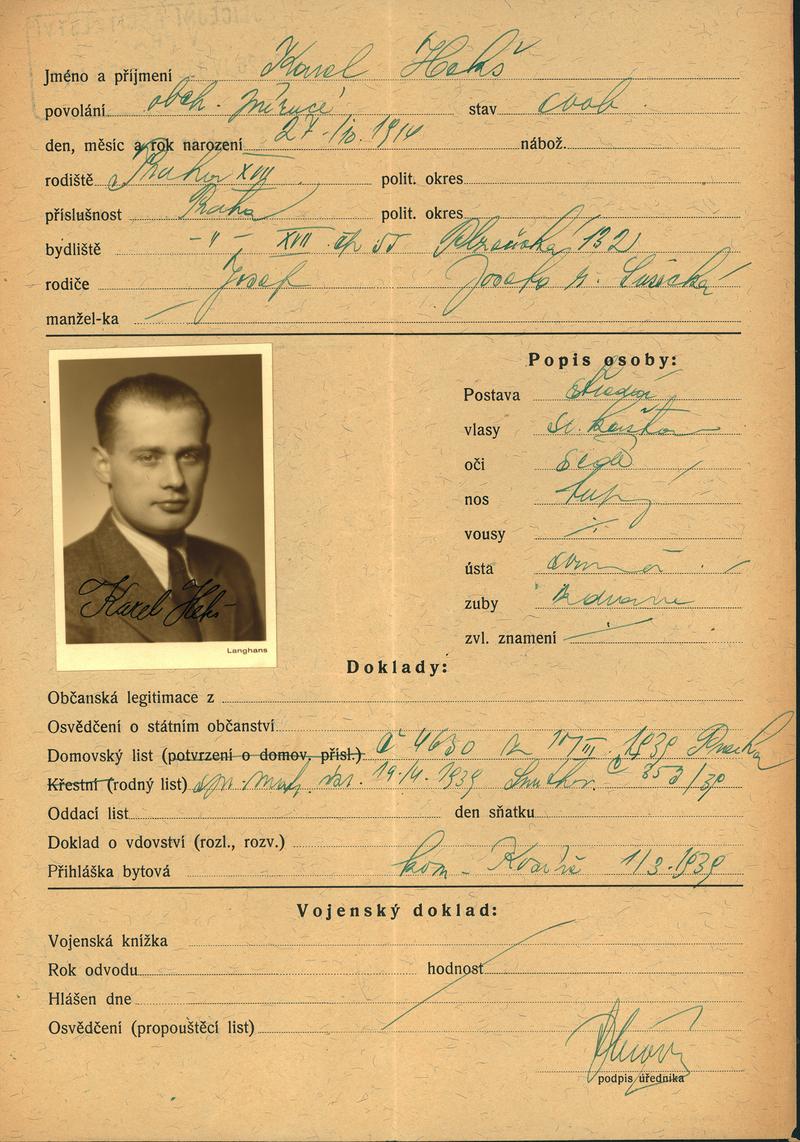 Jméno a příjmení Karel Hekš
povolání obch. stav svob.
den, měsíc a rok narození 27./10. 1914 nábož.
rodiště Praha XVII polit. okres
příslušnost Praha polit. okres
bydliště -"- XVII čp 55 Plzeňská 132
rodiče Josef Josefa r. Sušická
manžel-ka
Popis osoby:
Postava střední
vlasy sv. kašt.
oči šedé
nos tupý
vousy
ústa
zuby zdravé
zvl. znamení
Karel Hekš
Langhans
Doklady:
Občanská legitimace z
Osvědčení o státním občanství
Domovský list (potvrzení o domov. přísl.) č 4630 z 10/III. 1939 Praha
Křestní (rodný list) 19./4. 1939 Smíchov č 353/39
Oddací list den sňatku
Doklad o vdovství (rozl., rozv.)
Přihláška bytová kom. Košíře 1/3.1939
Vojenský doklad:
Vojenská knížka
Rok odvodu hodnost
Hlášen dne
Osvědčení (propouštěcí list)
podpis úředníka